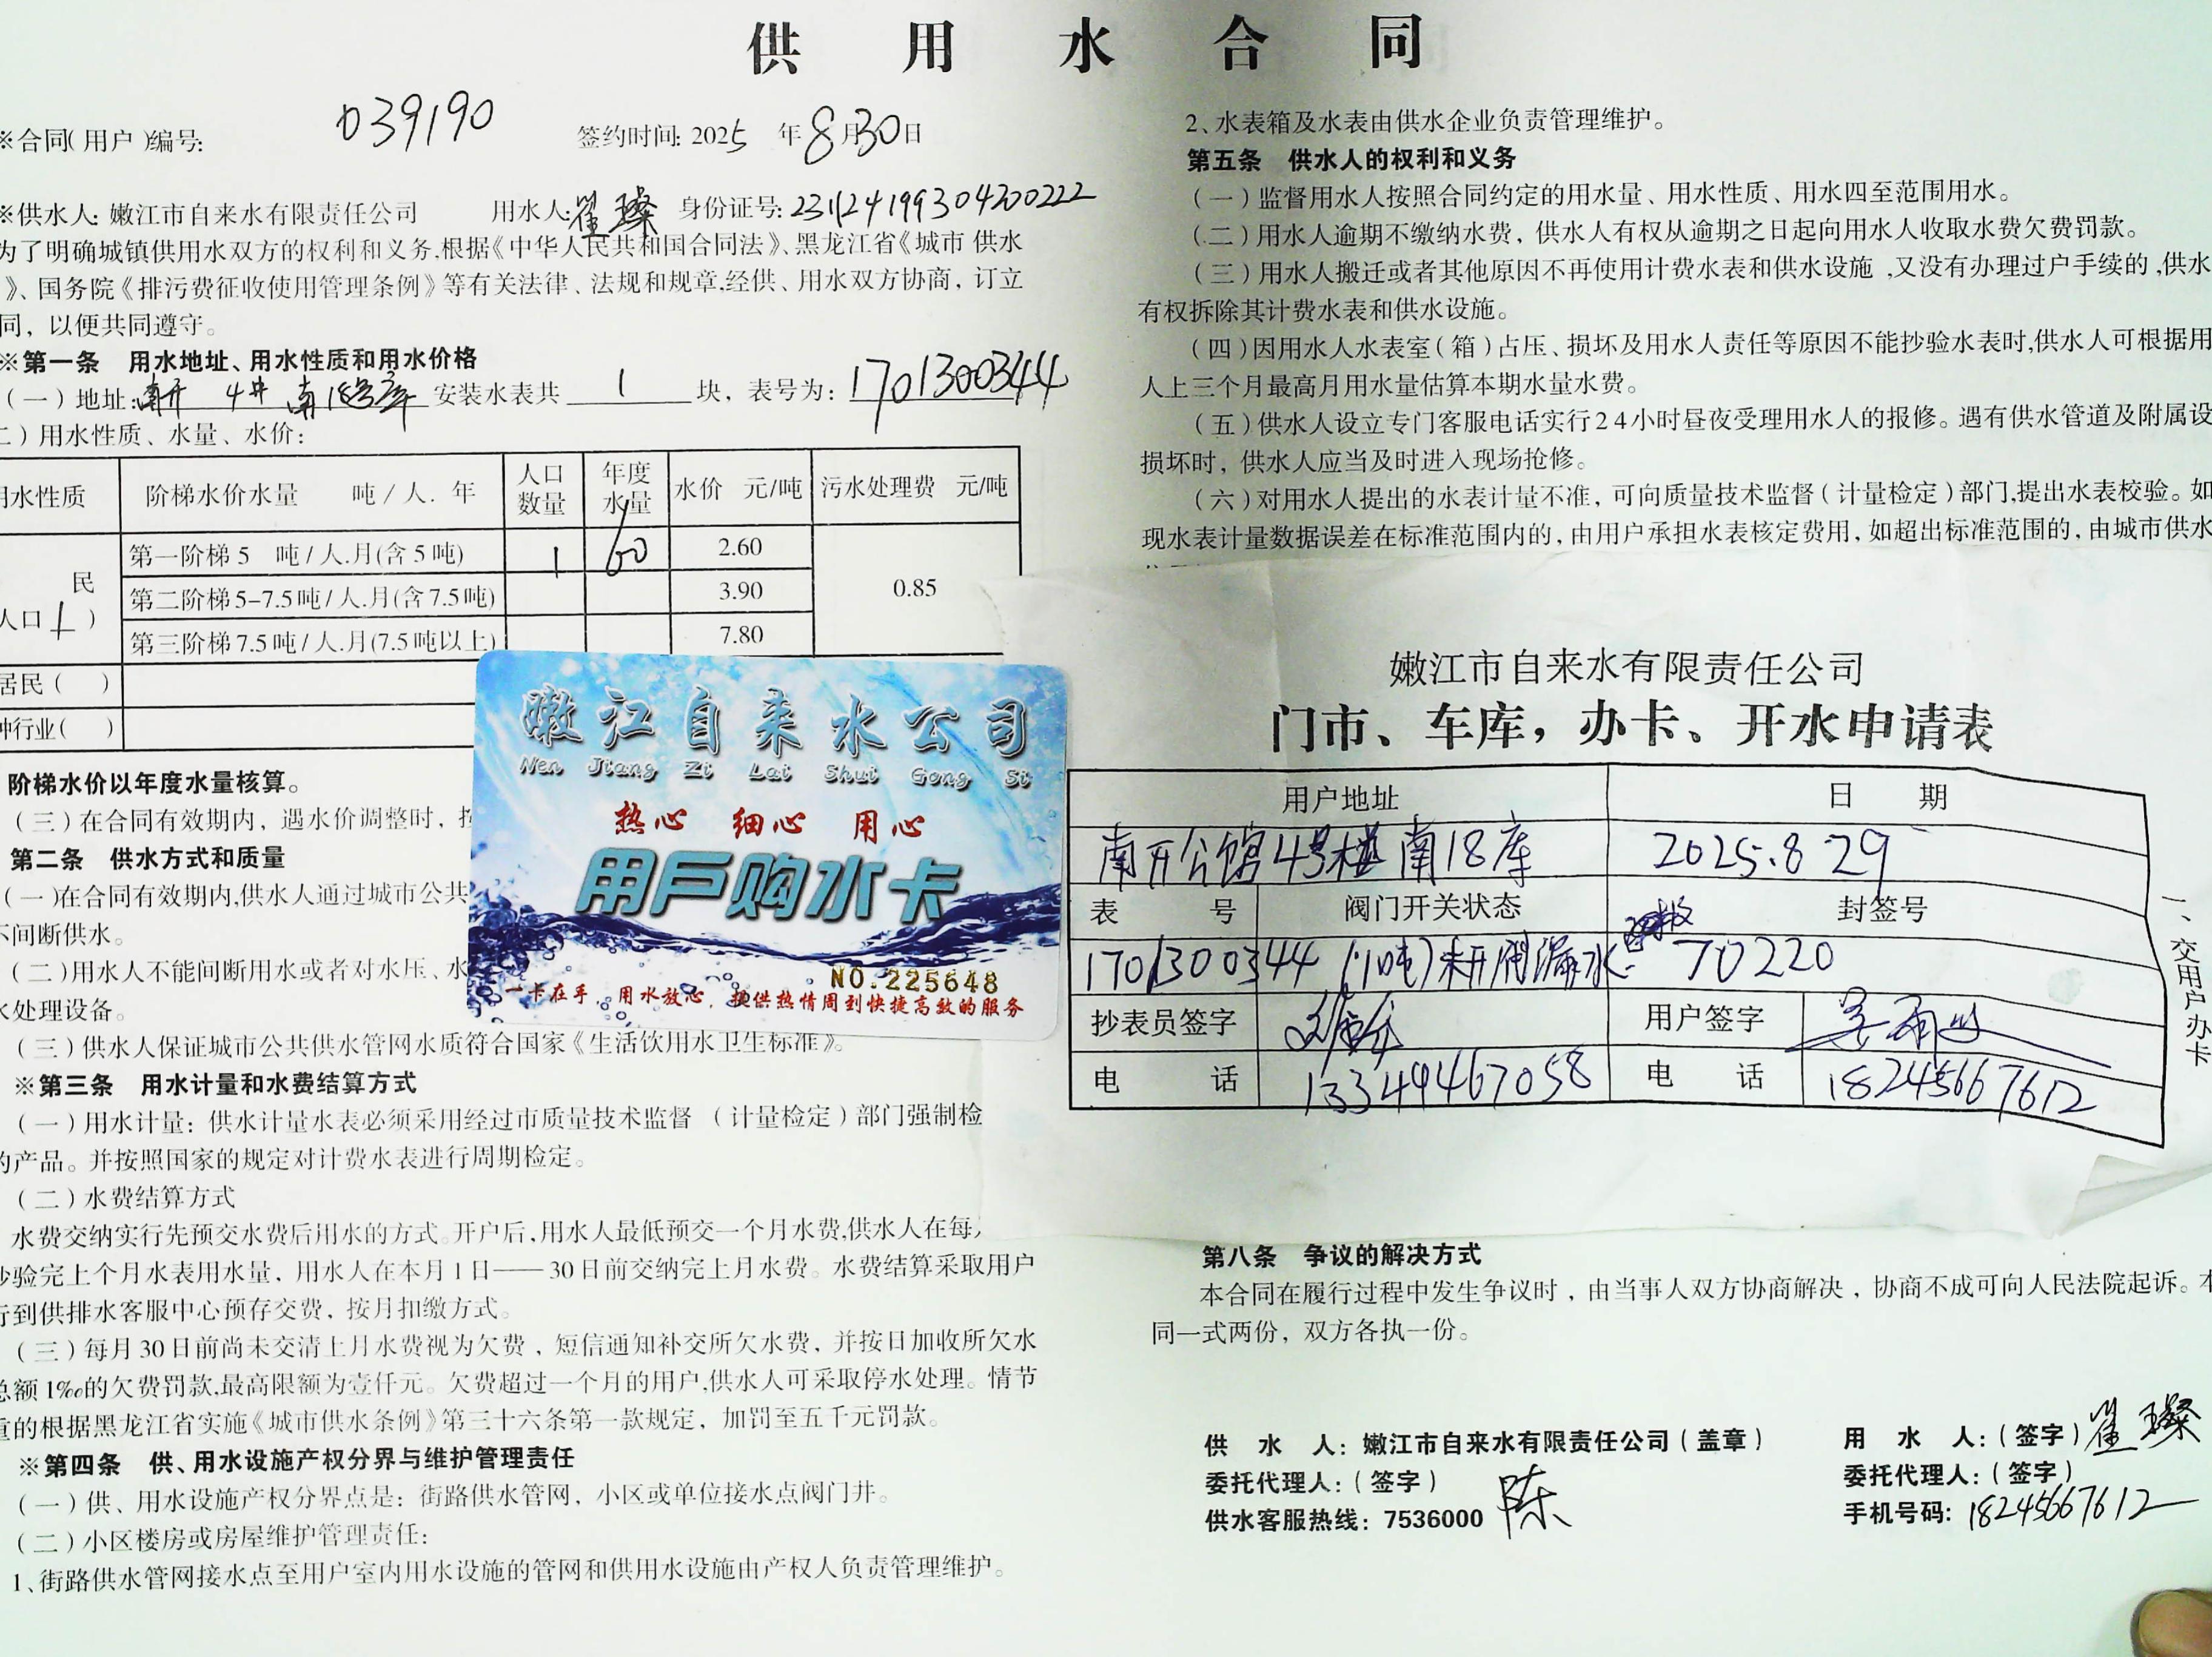 供 用 水 合 同
※合同(用户)编号: 039190 签约时间: 2025 年 8 月 30 日
※供水人: 嫩江市自来水有限责任公司 用水人: 崔璨 身份证号: 231124199304200222
为了明确城镇供用水双方的权利和义务,根据《中华人民共和国合同法》、黑龙江省《城市 供水
》、国务院《排污费征收使用管理条例》等有关法律、法规和规章,经供、用水双方协商，订立
同，以便共同遵守。
※第一条 用水地址、用水性质和用水价格
(一)地址: 南开 4# 南18号库 安装水表共 1 块，表号为: 1701300344
二)用水性质、水量、水价:
用水性质 阶梯水价水量 吨/人.年 人口数量 年度水量 水价 元/吨 污水处理费 元/吨
民
人口 1 )
第一阶梯5 吨/人.月(含5吨) 1 60 2.60
第二阶梯5-7.5吨/人.月(含7.5吨) 3.90 0.85
第三阶梯7.5吨/人.月(7.5吨以上) 7.80
居民( )
种行业( )
阶梯水价以年度水量核算。
(三)在合同有效期内，遇水价调整时，按
第二条 供水方式和质量
(一)在合同有效期内,供水人通过城市公共
不间断供水。
(二)用水人不能间断用水或者对水压、水
水处理设备。
(三)供水人保证城市公共供水管网水质符合国家《生活饮用水卫生标准》。
※第三条 用水计量和水费结算方式
(一)用水计量: 供水计量水表必须采用经过市质量技术监督 (计量检定)部门强制检
的产品。并按照国家的规定对计费水表进行周期检定。
(二)水费结算方式
水费交纳实行先预交水费后用水的方式。开户后,用水人最低预交一个月水费,供水人在每月
抄验完上个月水表用水量，用水人在本月1日——30日前交纳完上月水费。水费结算采取用户
行到供排水客服中心预存交费，按月扣缴方式。
(三)每月30日前尚未交清上月水费视为欠费，短信通知补交所欠水费，并按日加收所欠水
总额1‰的欠费罚款,最高限额为壹仟元。欠费超过一个月的用户,供水人可采取停水处理。情节
重的根据黑龙江省实施《城市供水条例》第三十六条第一款规定，加罚至五千元罚款。
※第四条 供、用水设施产权分界与维护管理责任
(一)供、用水设施产权分界点是: 街路供水管网，小区或单位接水点阀门井。
(二)小区楼房或房屋维护管理责任:
1、街路供水管网接水点至用户室内用水设施的管网和供用水设施由产权人负责管理维护。
嫩江自来水公司
Nen Jiang Zi Lai Shui Gong Si
热心 细心 用心
用户购水卡
NO.225648
一卡在手，用水放心，提供热情周到快捷高效的服务
2、水表箱及水表由供水企业负责管理维护。
第五条 供水人的权利和义务
(一)监督用水人按照合同约定的用水量、用水性质、用水四至范围用水。
(二)用水人逾期不缴纳水费，供水人有权从逾期之日起向用水人收取水费欠费罚款。
(三)用水人搬迁或者其他原因不再使用计费水表和供水设施,又没有办理过户手续的,供水
有权拆除其计费水表和供水设施。
(四)因用水人水表室(箱)占压、损坏及用水人责任等原因不能抄验水表时,供水人可根据用
人上三个月最高月用水量估算本期水量水费。
(五)供水人设立专门客服电话实行24小时昼夜受理用水人的报修。遇有供水管道及附属设
损坏时，供水人应当及时进入现场抢修。
(六)对用水人提出的水表计量不准，可向质量技术监督(计量检定)部门,提出水表校验。如
现水表计量数据误差在标准范围内的，由用户承担水表核定费用，如超出标准范围的，由城市供水
嫩江市自来水有限责任公司
门市、车库，办卡、开水申请表
用户地址 日 期
南开公馆4号楼南18库 2025.8 29
表 号 阀门开关状态 封签号
1701300344 (1吨)未开阀漏水 70220
抄表员签字 用户签字
电 话 13349467058 电 话 18245667612
一、交用户办卡
第八条 争议的解决方式
本合同在履行过程中发生争议时，由当事人双方协商解决，协商不成可向人民法院起诉。本
同一式两份，双方各执一份。
供 水 人: 嫩江市自来水有限责任公司(盖章) 用 水 人:(签字) 崔璨
委托代理人:(签字) 陈 委托代理人:(签字)
供水客服热线: 7536000 手机号码: 18245667612